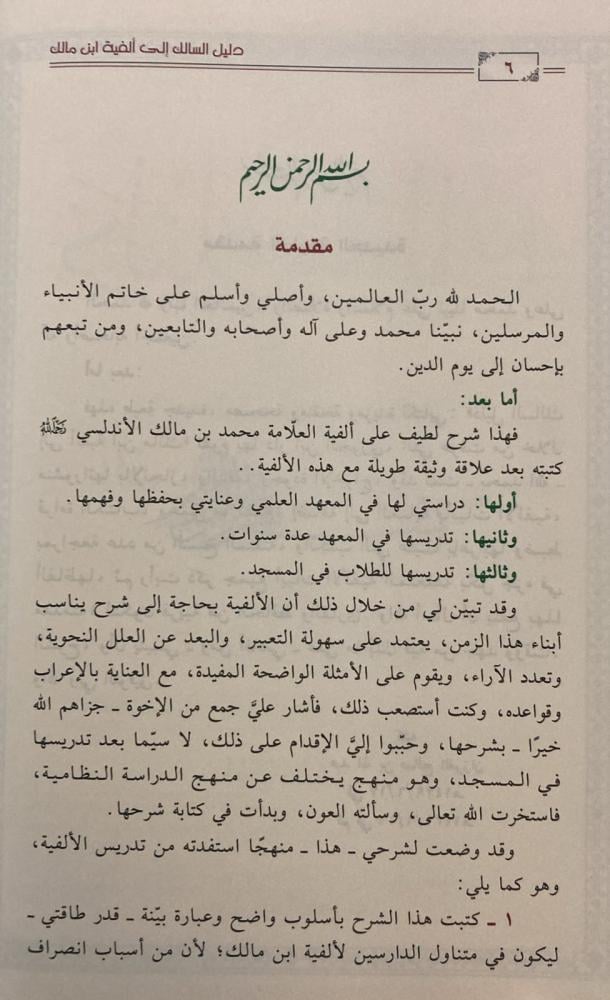 دليل السالك إلى ألفية ابن مالك
٦
بسم الله الرحمن الرحيم
مقدمة
الحمد لله ربّ العالمين، وأصلي وأسلم على خاتم الأنبياء
والمرسلين، نبيّنا محمد وعلى آله وأصحابه والتابعين، ومن تبعهم
بإحسان إلى يوم الدين.
أما بعد:
فهذا شرح لطيف على ألفية العلّامة محمد بن مالك الأندلسي رَحِمَهُ اللهُ
كتبته بعد علاقة وثيقة طويلة مع هذه الألفية..
أولها: دراستي لها في المعهد العلمي وعنايتي بحفظها وفهمها.
وثانيها: تدريسها في المعهد عدة سنوات.
وثالثها: تدريسها للطلاب في المسجد.
وقد تبيّن لي من خلال ذلك أن الألفية بحاجة إلى شرح يناسب
أبناء هذا الزمن، يعتمد على سهولة التعبير، والبعد عن العلل النحوية،
وتعدد الآراء، ويقوم على الأمثلة الواضحة المفيدة، مع العناية بالإعراب
وقواعده، وكنت أستصعب ذلك، فأشار عليَّ جمع من الإخوة ـ جزاهم الله
خيرًا ـ بشرحها، وحبّبوا إليَّ الإقدام على ذلك، لا سيّما بعد تدريسها
في المسجد، وهو منهج يختلف عن منهج الدراسة النظامية،
فاستخرت الله تعالى، وسألته العون، وبدأت في كتابة شرحها.
وقد وضعت لشرحي ـ هذا ـ منهجًا استفدته من تدريس الألفية،
وهو كما يلي:
١ ـ كتبت هذا الشرح بأسلوب واضح وعبارة بيّنة ـ قدر طاقتي ـ
ليكون في متناول الدارسين لألفية ابن مالك؛ لأن من أسباب انصراف